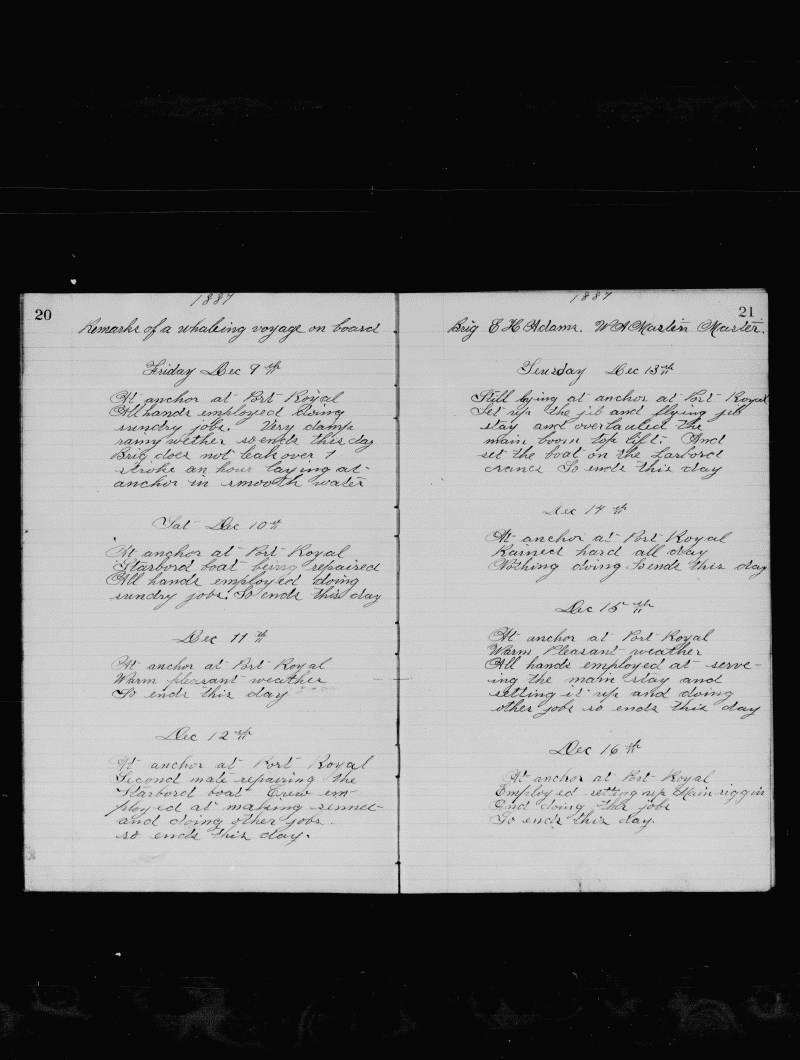 1887
20
Remarks of a whaleing voyage on board
Friday Dec 9th
At anchor at Port Royal
All hands employed doing
sundry jobs. Very damp
rainy wether so ends this day
Brig does not leak over 1
stroke an hour laying at
anchor in smooth water
Sat Dec 10th
At anchor at Port Royal
Starbord boat being repaired
All hands employed doing
sundry jobs. So ends this day
Dec 11th
At anchor at Port Royal
Warm pleasant weather
So ends this day
Dec 12th
At anchor at Port Royal
Second mate repairing the
Starbord boat Crew em-
ployed at making sennet
and doing other jobs.
so ends this day.
1887
21
Brig E H Adams. W A Martin Master.
Teusday Dec 13th
Still lying at anchor at Port Royal
Set up the jib and flying jib
stay and overhauled the
main boom top lift. And
set the boat on the Larbord
cranes So ends this day
Dec 14th
At anchor at Port Royal
Rained hard all day
Nothing doing So ends this day
Dec 15th
At anchor at Port Royal
Warm Pleasant weather
All hands employed at serve-
ing the main stay and
setting it up and doing
other jobs so ends this day
Dec 16th
At anchor at Port Royal
Employed setting up Main riggin
And doing other jobs
So ends this day.